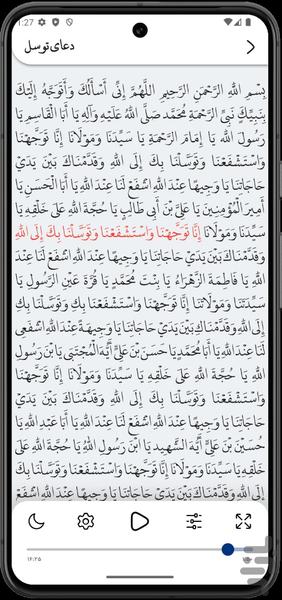 1:27
دعای توسل
بِسْمِ اللَّهِ الرَّحْمَنِ الرَّحِيمِ اللَّهُمَّ إِنِّي أَسْأَلُكَ وَأَتَوَجَّهُ إِلَيْكَ
بِنَبِيِّكَ نَبِيِّ الرَّحْمَةِ مُحَمَّدٍ صَلَّى اللَّهُ عَلَيْهِ وَآلِهِ يَا أَبَا الْقَاسِمِ يَا
رَسُولَ اللَّهِ يَا إِمَامَ الرَّحْمَةِ يَا سَيِّدَنَا وَمَوْلَانَا إِنَّا تَوَجَّهْنَا
وَاسْتَشْفَعْنَا وَتَوَسَّلْنَا بِكَ إِلَى اللَّهِ وَقَدَّمْنَاكَ بَيْنَ يَدَيْ
حَاجَاتِنَا يَا وَجِيهًا عِنْدَ اللَّهِ اشْفَعْ لَنَا عِنْدَ اللَّهِ يَا أَبَا الْحَسَنِ يَا
أَمِيرَ الْمُؤْمِنِينَ يَا عَلِيَّ بْنَ أَبِي طَالِبٍ يَا حُجَّةَ اللَّهِ عَلَى خَلْقِهِ يَا
سَيِّدَنَا وَمَوْلَانَا إِنَّا تَوَجَّهْنَا وَاسْتَشْفَعْنَا وَتَوَسَّلْنَا بِكَ إِلَى اللَّهِ
وَقَدَّمْنَاكَ بَيْنَ يَدَيْ حَاجَاتِنَا يَا وَجِيهًا عِنْدَ اللَّهِ اشْفَعْ لَنَا عِنْدَ
اللَّهِ يَا فَاطِمَةُ الزَّهْرَاءُ يَا بِنْتَ مُحَمَّدٍ يَا قُرَّةَ عَيْنِ الرَّسُولِ يَا
سَيِّدَتَنَا وَمَوْلَاتَنَا إِنَّا تَوَجَّهْنَا وَاسْتَشْفَعْنَا وَتَوَسَّلْنَا بِكِ
إِلَى اللَّهِ وَقَدَّمْنَاكِ بَيْنَ يَدَيْ حَاجَاتِنَا يَا وَجِيهَةً عِنْدَ اللَّهِ اشْفَعِي
لَنَا عِنْدَ اللَّهِ يَا أَبَا مُحَمَّدٍ يَا حَسَنَ بْنَ عَلِيٍّ أَيُّهَا الْمُجْتَبَى يَا بْنَ رَسُولِ
اللَّهِ يَا حُجَّةَ اللَّهِ عَلَى خَلْقِهِ يَا سَيِّدَنَا وَمَوْلَانَا إِنَّا تَوَجَّهْنَا
وَاسْتَشْفَعْنَا وَتَوَسَّلْنَا بِكَ إِلَى اللَّهِ وَقَدَّمْنَاكَ بَيْنَ يَدَيْ
حَاجَاتِنَا يَا وَجِيهًا عِنْدَ اللَّهِ اشْفَعْ لَنَا عِنْدَ اللَّهِ يَا أَبَا عَبْدِ اللَّهِ يَا
حُسَيْنَ بْنَ عَلِيٍّ أَيُّهَا الشَّهِيدُ يَا بْنَ رَسُولِ اللَّهِ يَا حُجَّةَ اللَّهِ عَلَى
خَلْقِهِ يَا سَيِّدَنَا وَمَوْلَانَا إِنَّا تَوَجَّهْنَا وَاسْتَشْفَعْنَا وَتَوَسَّلْنَا بِكَ
إِلَى اللَّهِ وَقَدَّمْنَاكَ بَيْنَ يَدَيْ حَاجَاتِنَا يَا وَجِيهًا عِنْدَ اللَّهِ اشْفَعْ
۱۶:۲۵